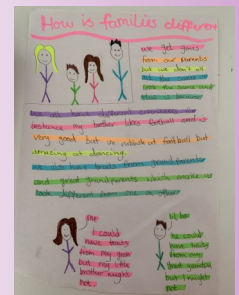 How is families different
we get gens
from our parents
but we don't all
look the same and
we all have different
my brother likes football and is
very good but im rubbish at football but
amazing at dancing.
from grand parents
and great grandparents which make us
look different from one an other
me
I could
have traits
from my gran
but my little
brother might
not.
lil bro
he could
have traits
from my
great grandad
but I might
not.